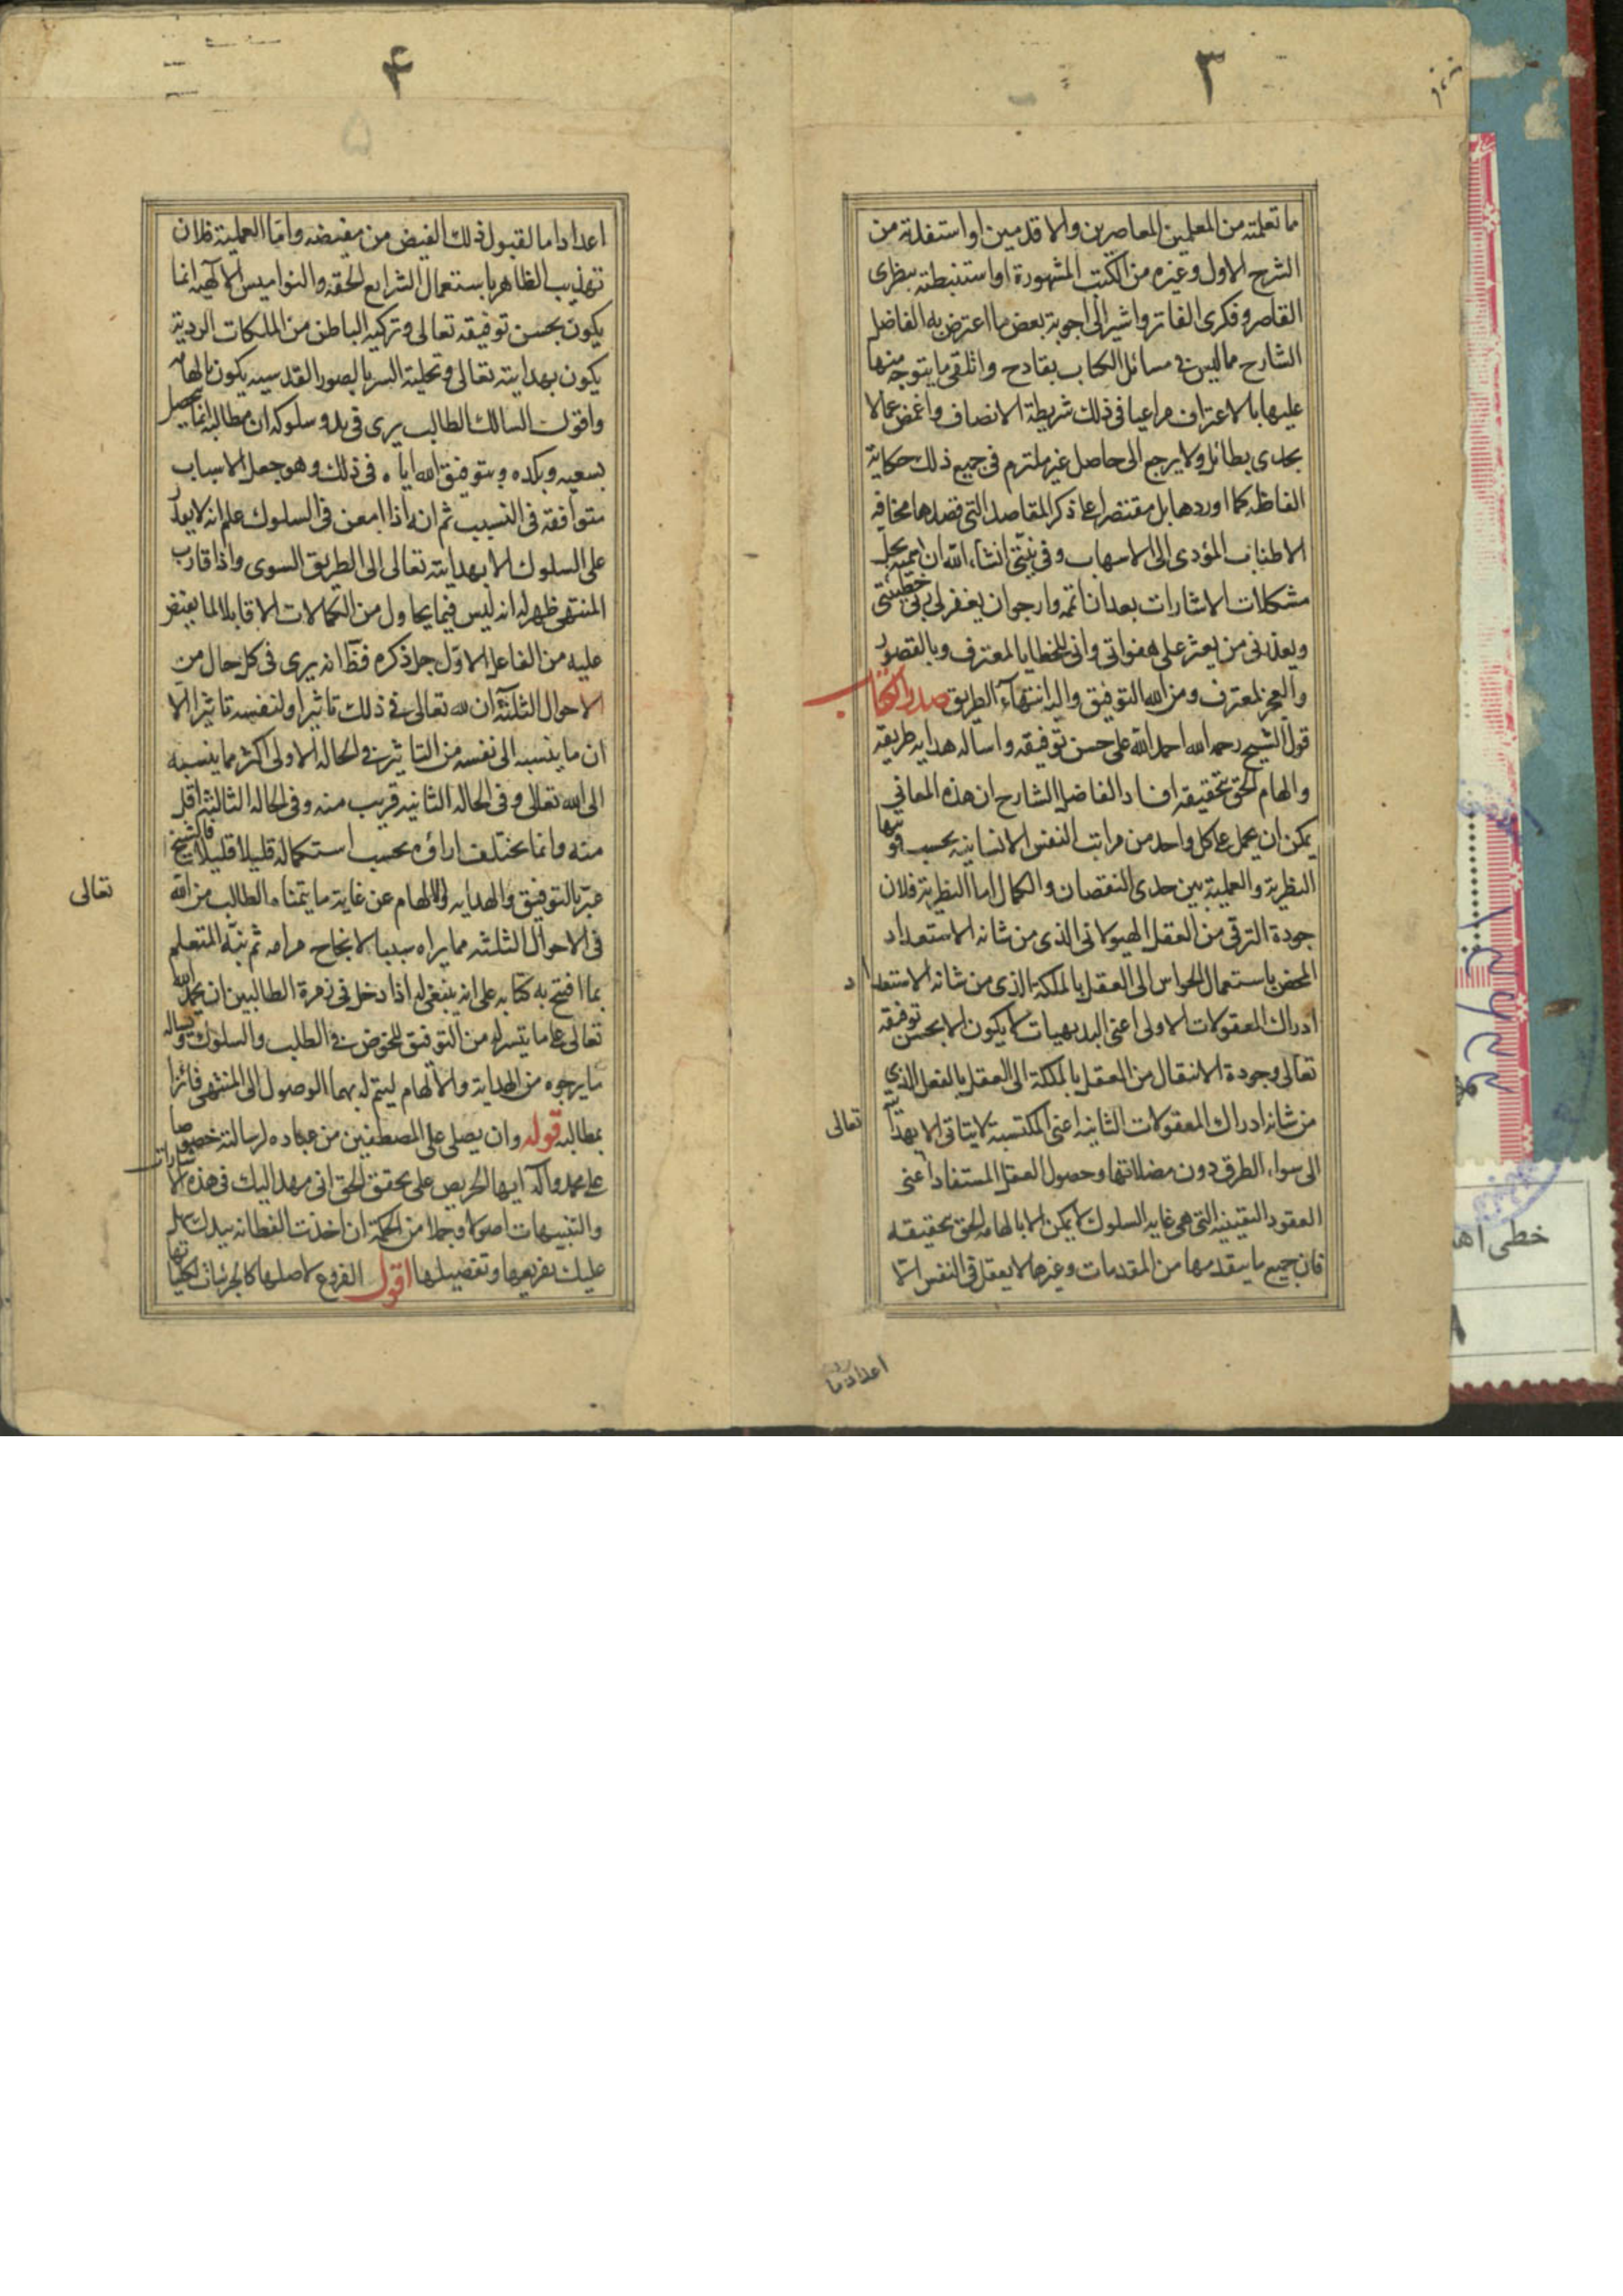 ٣
ما تعلمته من المعلمين المعاصرين والاقدمين او استفدته من
الشرح الاول وغيره من الكتب المشهورة او استنبطته بنظرى
القاصر وفكرى الفاتر واشير الى اجوبة بعض ما اعترض به الفاضل
الشارح مما ليس فى مسائل الكتاب بقادح واتلقى ما يتوجه منها
عليها بالاعتراف مراعيا فى ذلك شريطة الانصاف واغمض عما لا
يجدى بطائل ولا يرجع الى حاصل غير ملتزم فى جميع ذلك حكاية
الفاظه كما اوردها بل مقتصرا على ذكر المقاصد التى قصدها مخافه
الاطناب المؤدى الى الاسهاب وفى نيتى انشاء الله ان
مشكلات الاشارات بعد ان اتمه وارجو ان يغفر لى ربى خطيئتى
ويعذرنى من يعثر على هفواتى وانى للخطايا المعترف وبالقصور
والعجز لمعترف ومن الله التوفيق واليه انتهاء الطريق صدر الكتاب
قول الشيخ رحمه الله احمد الله على حسن توفيقه واساله هدايه طريقه
والهام الحق بتحقيقه افاد الفاضل الشارح ان هذه المعانى
يمكن ان يحمل على كل واحد من مراتب النفس الانسانيه بحسب قوتها
النظرية والعملية بين حدى النقصان والكمال اما النظرية فلان
جودة الترقى من العقل الهيولانى الذى من شانه الاستعداد
المحض باستعمال الحواس الى العقل بالملكة الذى من شانه الاستعداد
ادراك المعقولات الاولى اعنى البديهيات لا يكون الا بحسن توفيقه
تعالى وجودة الانتقال من العقل بالملكة الى العقل بالفعل الذى
من شانه ادراك المعقولات الثانيه اعنى المكتسبة لا يتاتى الا بهدايته
تعالى
الى سواء الطرق دون مضلاتها وحصول العقل المستفاد اعنى
العقود اليقينيه التى هى غايه السلوك لا يمكن الا بالهامه الحق بحقيقه
فان جميع ما يتقدمها من المقدمات وغيرها لا يعقل فى النفس الا
اعدادا ما
۴
۵
اعدادا ما لقبول ذلك الفيض من مفيضه واما العملية فلان
تهذيب الظاهر باستعمال الشرايع الحقه والنواميس الالهيه انما
يكون بحسن توفيقه تعالى وتزكيه الباطن من الملكات الردية
يكون بهدايته تعالى وتحلية السر بالصور القدسيه يكون بالهامه
واقول السالك الطالب يرى فى بدو سلوكه ان مطالبه انما يحصل
بسعيه وبكده وبتوفيق الله اياه فى ذلك وهو جعل الاسباب
متوافقه فى التسبيب ثم انه اذا امعن فى السلوك علم انه لا يقدر
على السلوك الا بهدايته تعالى الى الطريق السوى واذا قارب
المنتهى ظهر له انه ليس فيما يحاول من الكمالات الا قابلا لما يفيض
عليه من الفاعل الاول جل ذكره فظ انه يرى فى كل حال من
الاحوال الثلثة ان لله تعالى فى ذلك تاثيرا ولنفسه تاثيرا الا
ان ما ينسبه الى نفسه من التاثير فى الحاله الاولى اكثر مما ينسبه
الى الله تعالى وفى الحاله الثانيه قريب منه وفى الحاله الثالثة اقل
منه وانما يختلف اراؤه بحسب استكماله قليلا قليلا فالشيخ
عبر بالتوفيق والهدايه والالهام عن غاية ما يتمناه الطالب من الله
تعالى
فى الاحوال الثلثه مما يراه سببا لانجاح مرامه ثم نبه المتعلم
بما افتتح به كتابه على انه ينبغى له اذا دخل فى زمرة الطالبين ان يحمد الله
تعالى على ما يتسر له من التوفيق للخوض فى الطلب والسلوك ويساله
ما يرجوه من الهداية والالهام ليتم له بهما الوصول الى المنتهى فائزا
بمطالبه قوله وان يصلى على المصطفين من عباده لرسالته خصوصا
على محمد واله ايها الحريص على تحقق الحق انى مهد اليك فى هذه الاشارات
والتنبيهات اصولا وجملا من الحكمة ان اخذت الفطانه بيدك سهل
عليك تفريعها وتفصيلها اقول الفروع لاصلها كالجزئيات لكلياتها
خطى